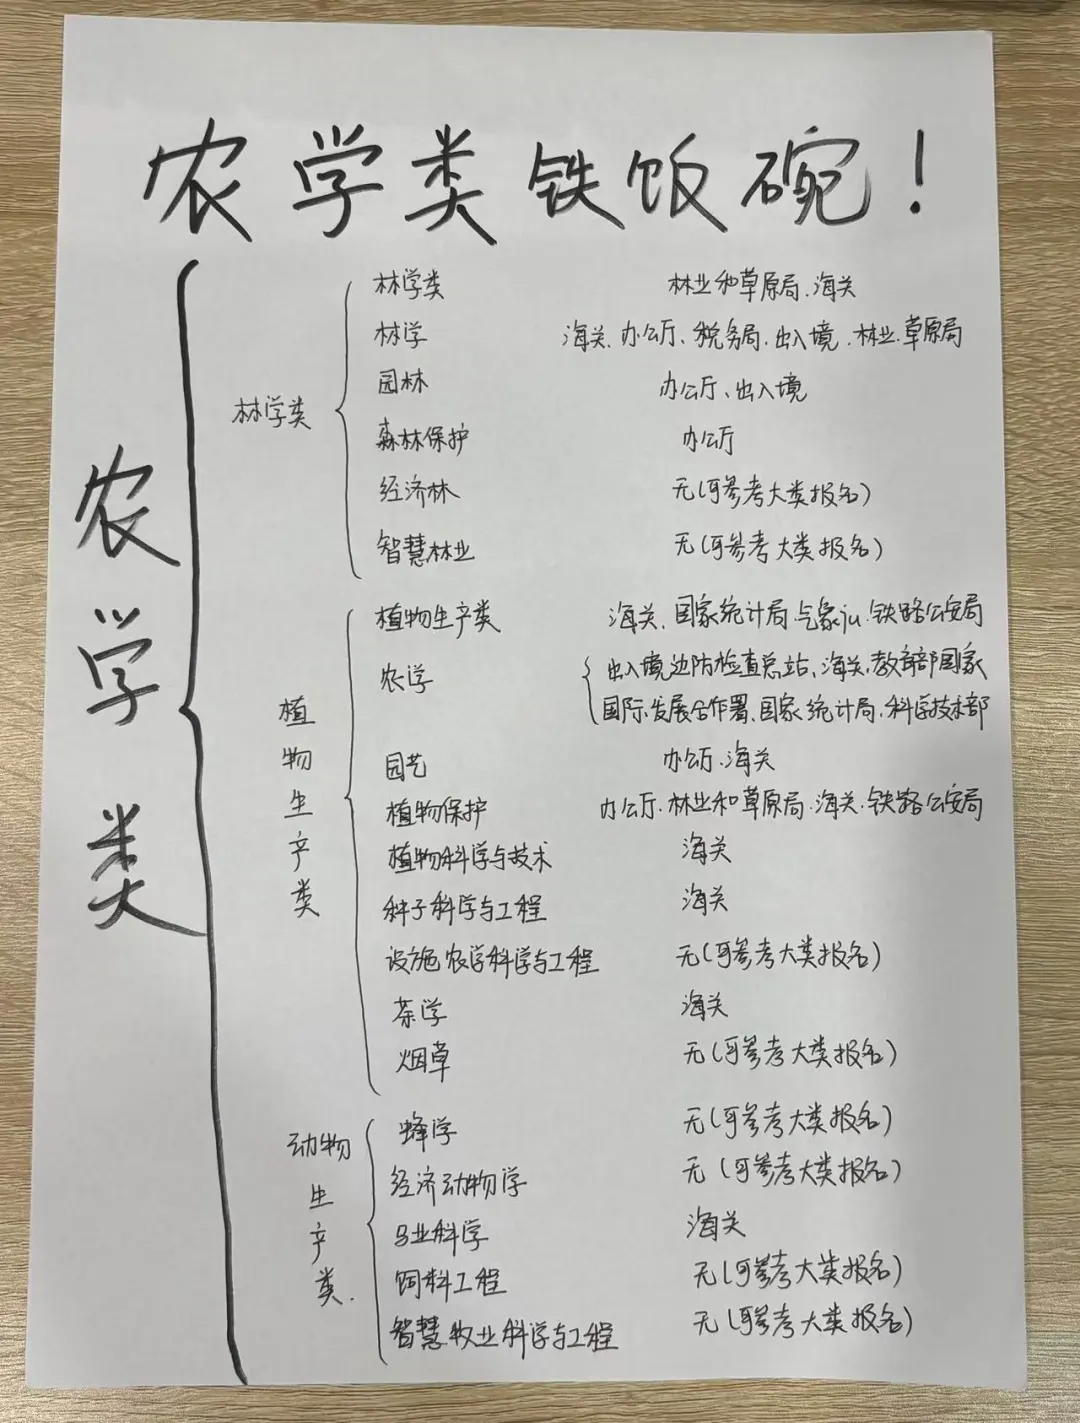 农学类铁饭碗！
农学类
林学类
林学类 林业和草原局、海关
林学 海关、办公厅、税务局、出入境、林业、草原局
园林 办公厅、出入境
森林保护 办公厅
经济林 无(可参考大类报名)
智慧林业 无(可参考大类报名)
植物生产类
植物生产类 海关、国家统计局、气象ju、铁路公安局
农学 出入境边防检查总站、海关、教育部国家
国际发展合作署、国家统计局、科学技术部
园艺 办公厅、海关
植物保护 办公厅、林业和草原局、海关、铁路公安局
植物科学与技术 海关
种子科学与工程 海关
设施农学科学与工程 无(可参考大类报名)
茶学 海关
烟草 无(可参考大类报名)
动物生产类.
蜂学 无(可参考大类报名)
经济动物学 无(可参考大类报名)
马业科学 海关
饲料工程 无(可参考大类报名)
智慧牧业科学与工程 无(可参考大类报名)